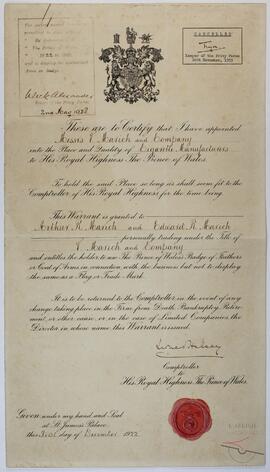 CANCELLED
Keeper of the Privy Purse
2nd May 1938
These are to Certify that I have appointed
Messrs V. Marich and Company
into the Place and Quality of Cigarette Manufacturers
to His Royal Highness The Prince of Wales.
To hold the said Place so long as shall seem fit to the
Comptroller of His Royal Highness for the time being.
This Warrant is granted to
Arthur R. Marich and Edward R. Marich
personally trading under the title of
V. Marich and Company
and entitles the holder to use The Prince of Wales's Badge of Feathers
or Coat of Arms in connection with the business but not to display
the same as a Flag or Trade Mark.
It is to be returned to the Comptroller in the event of any
change taking place in the Firm from Death, Bankruptcy, Retire-
ment, or other cause, or in the case of Limited Companies the
Director in whose name this Warrant is issued.
Comptroller
to
His Royal Highness The Prince of Wales.
Given under my hand and Seal
at St James's Palace
this day of December 1922